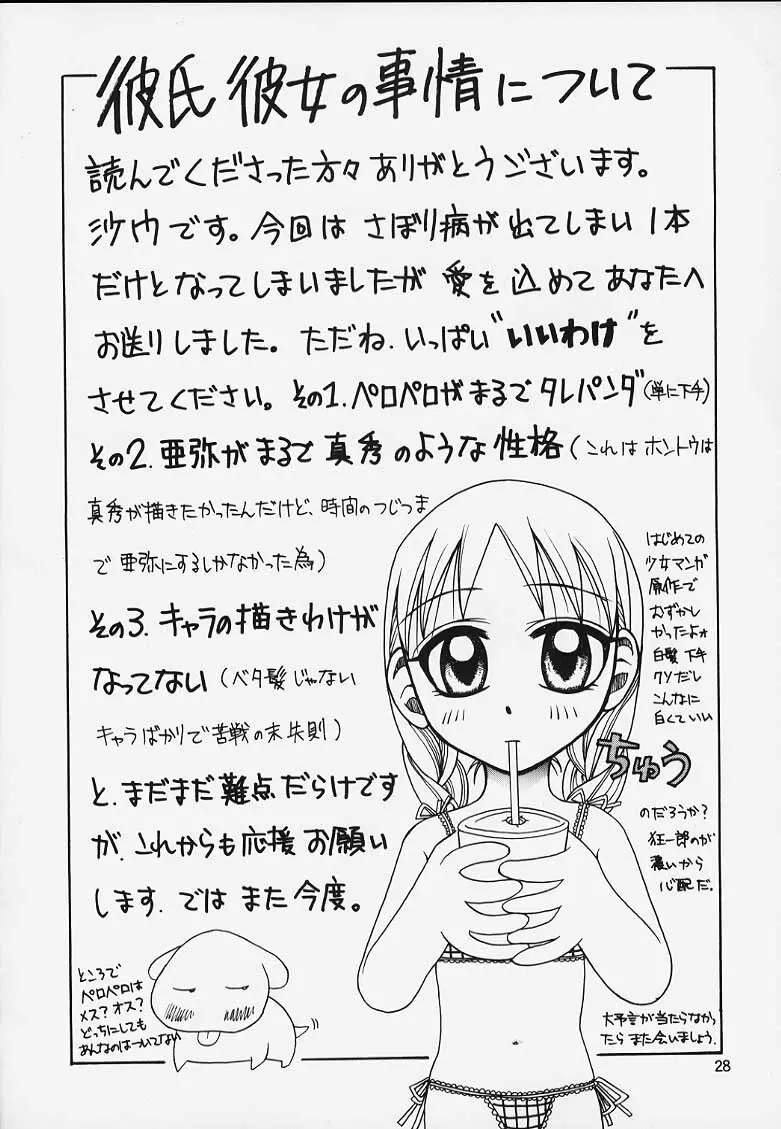 彼氏彼女の事情について
読んでくださった方々ありがとうございます。
沙ウです。今回は さぼり病が出てしまい 1本
だけとなってしまいましたが 愛を込めて あなたへ
お送りしました。ただね、いっぱい"いいわけ"を
させてください。その1.ペロペロがまるでタレパンダ(単に下手)
その2.亜弥がまるで真秀のような性格(これはホントウは
真秀が描きたかったんだけど、時間のつじつま
で亜弥にするしかなかった為)
その3.キャラの描きわけが
なってない(ベタ髪じゃない
キャラばかりで苦戦の末失則)
と、まだまだ難点だらけです
が、これからも応援お願い
します。ではまた今度。
はじめての
少女マンガ
原作で
むずかし
かったよォ
白髪下手
クソだし
こんなに
白くていい
のだろうか?
狂一郎のが
濃いから
心配だ。
ちゅう
ところで
ペロペロは
メス?オス?
どっちにしても
あんなのはついてない
大予言が当たらなかっ
たら また会いましょう。
28